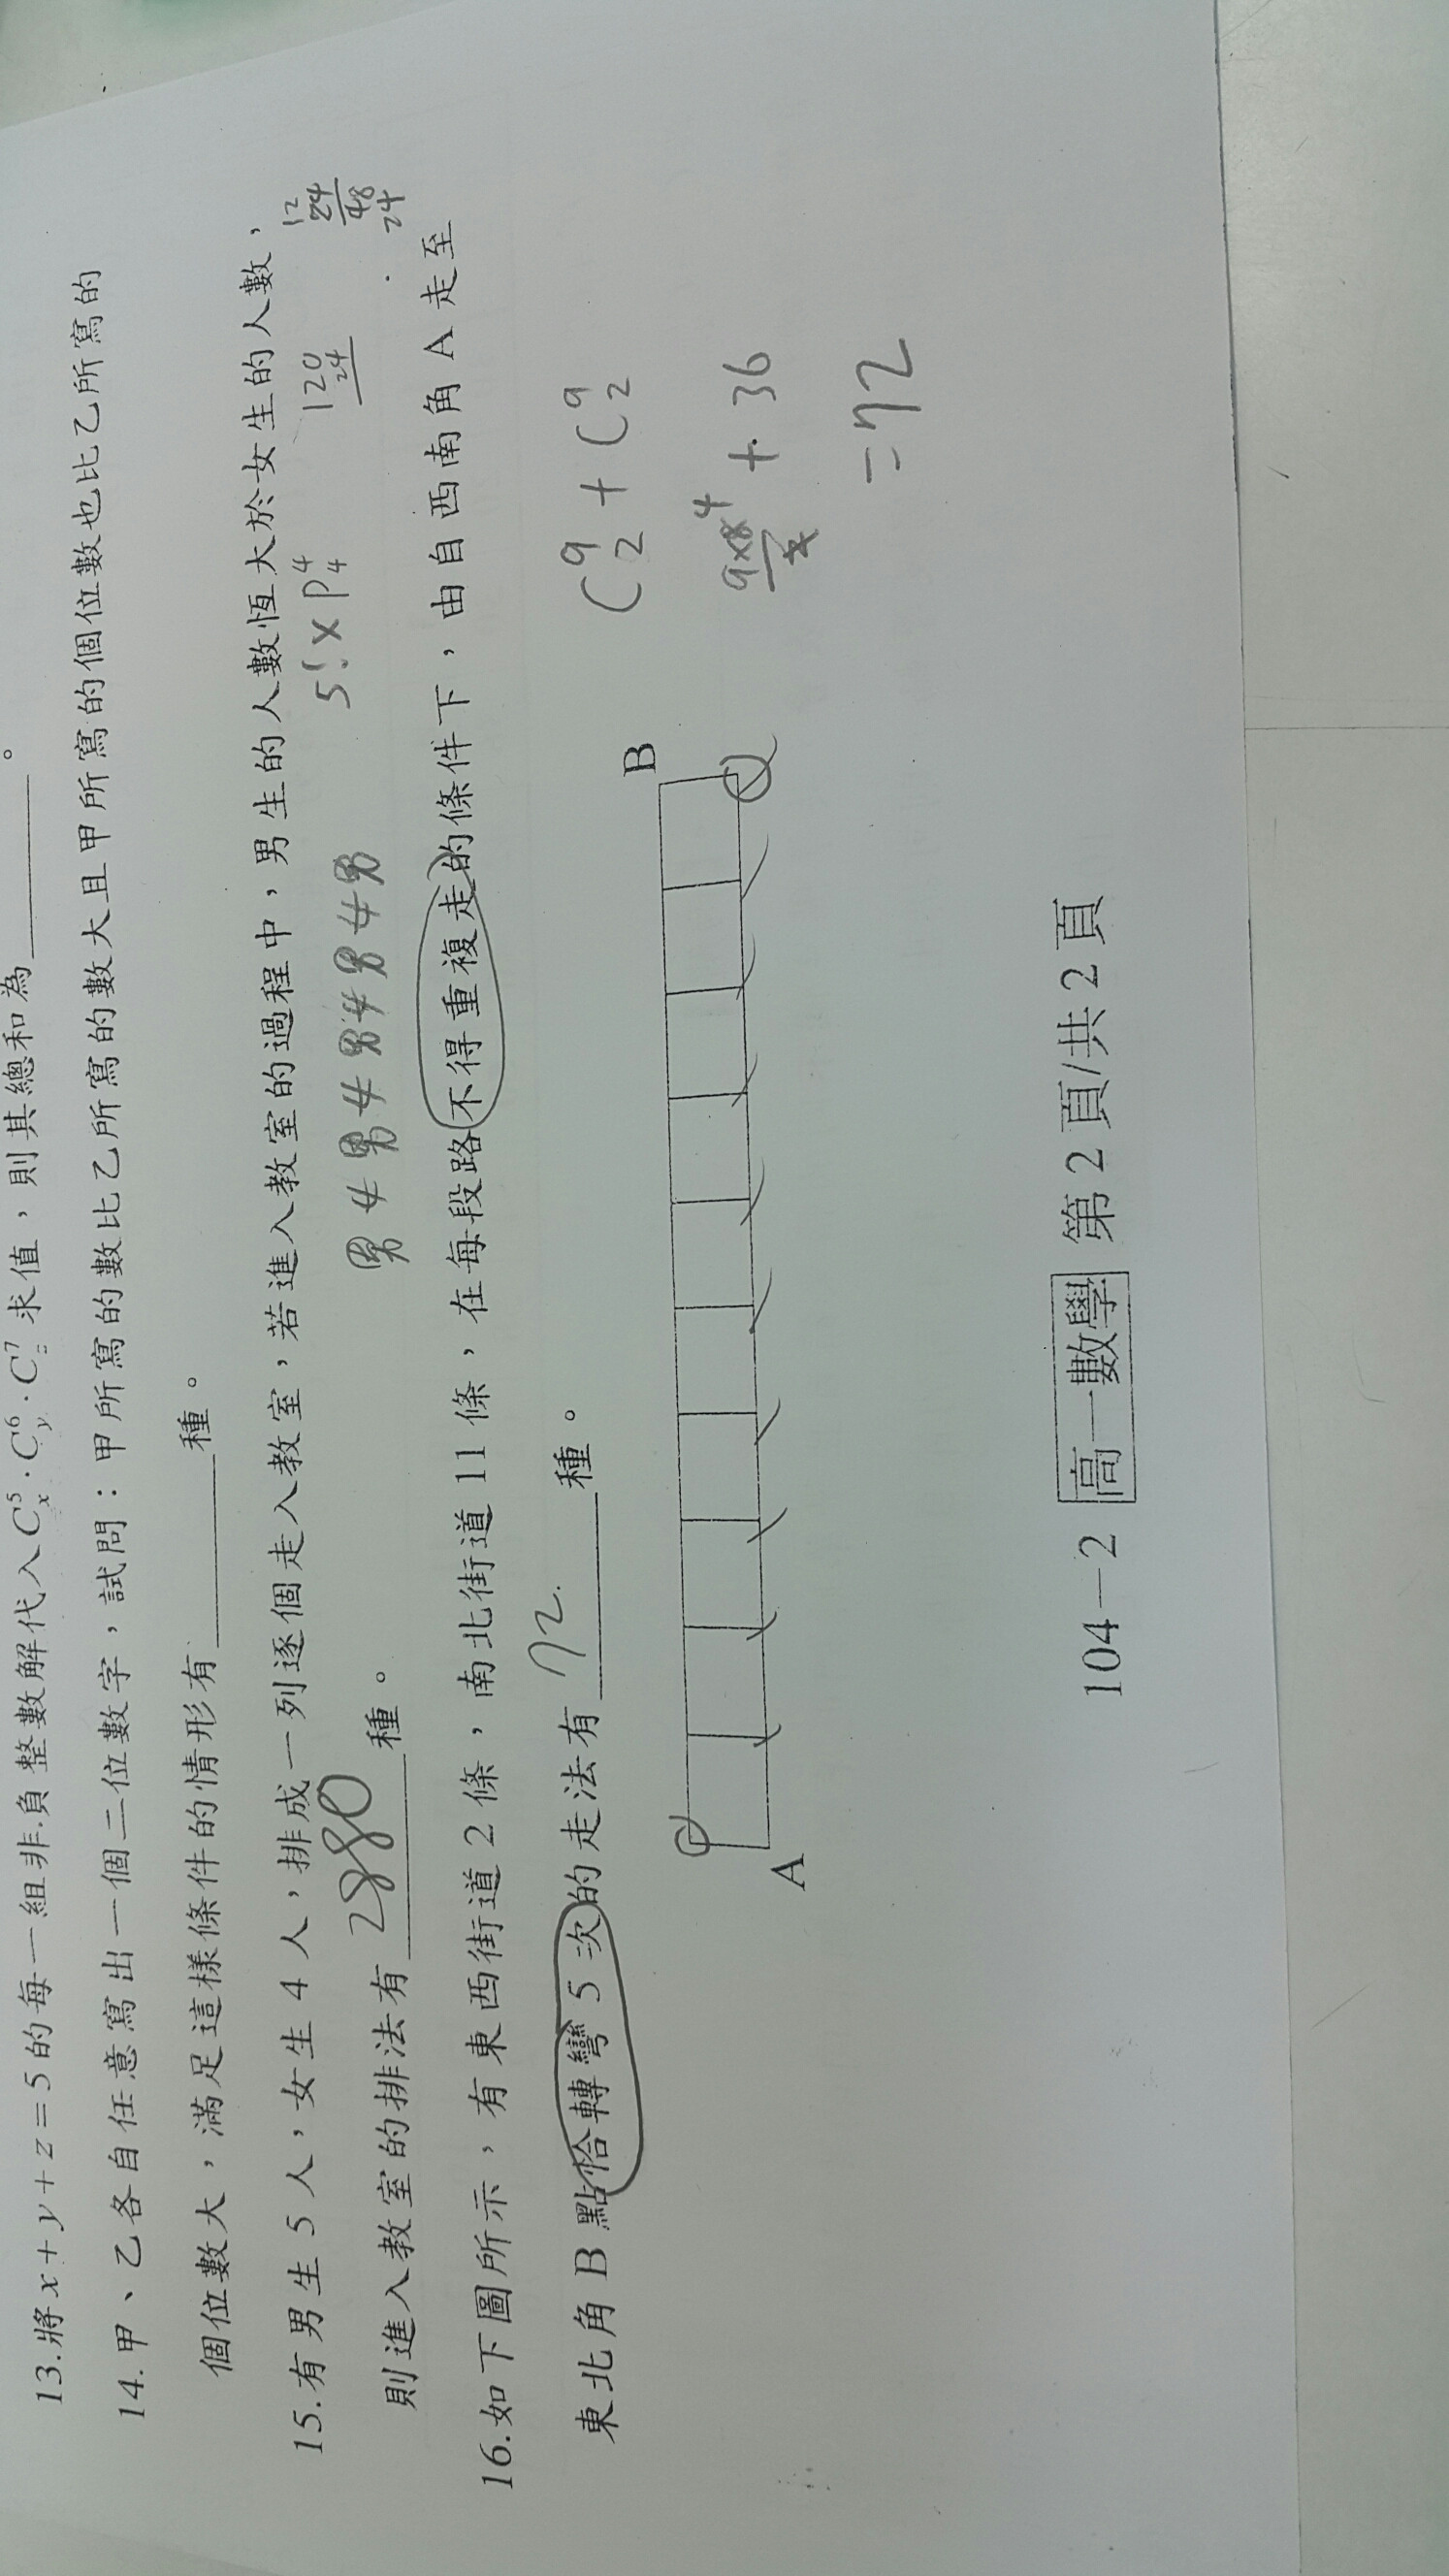 13.將 x + y + z = 5 的每一組非負整數解代入 C^5_x · C^6_y · C^7_z 求值，則其總和為______。
14.甲、乙各自任意寫出一個二位數字，試問：甲所寫的數比乙所寫的數大且甲所寫的個位數也比乙所寫的
個位數大，滿足這樣條件的情形有______種。
15.有男生 5 人，女生 4 人，排成一列逐個走入教室，若進入教室的過程中，男生的人數恆大於女生的人數，
則進入教室的排法有 2880 種。
5! × P^4_4
120
24
12
24
48
24
男 女 男 女 男 女 男 女 男
16.如下圖所示，有東西街道 2 條，南北街道 11 條，在每段路不得重複走的條件下，由自西南角 A 走至
東北角 B 點恰轉彎 5 次的走法有 72 種。
B
A
C^9_2 + C^9_2
9×8 4
2
+ 36
= 72
104－2 高一數學 第 2 頁/共 2 頁